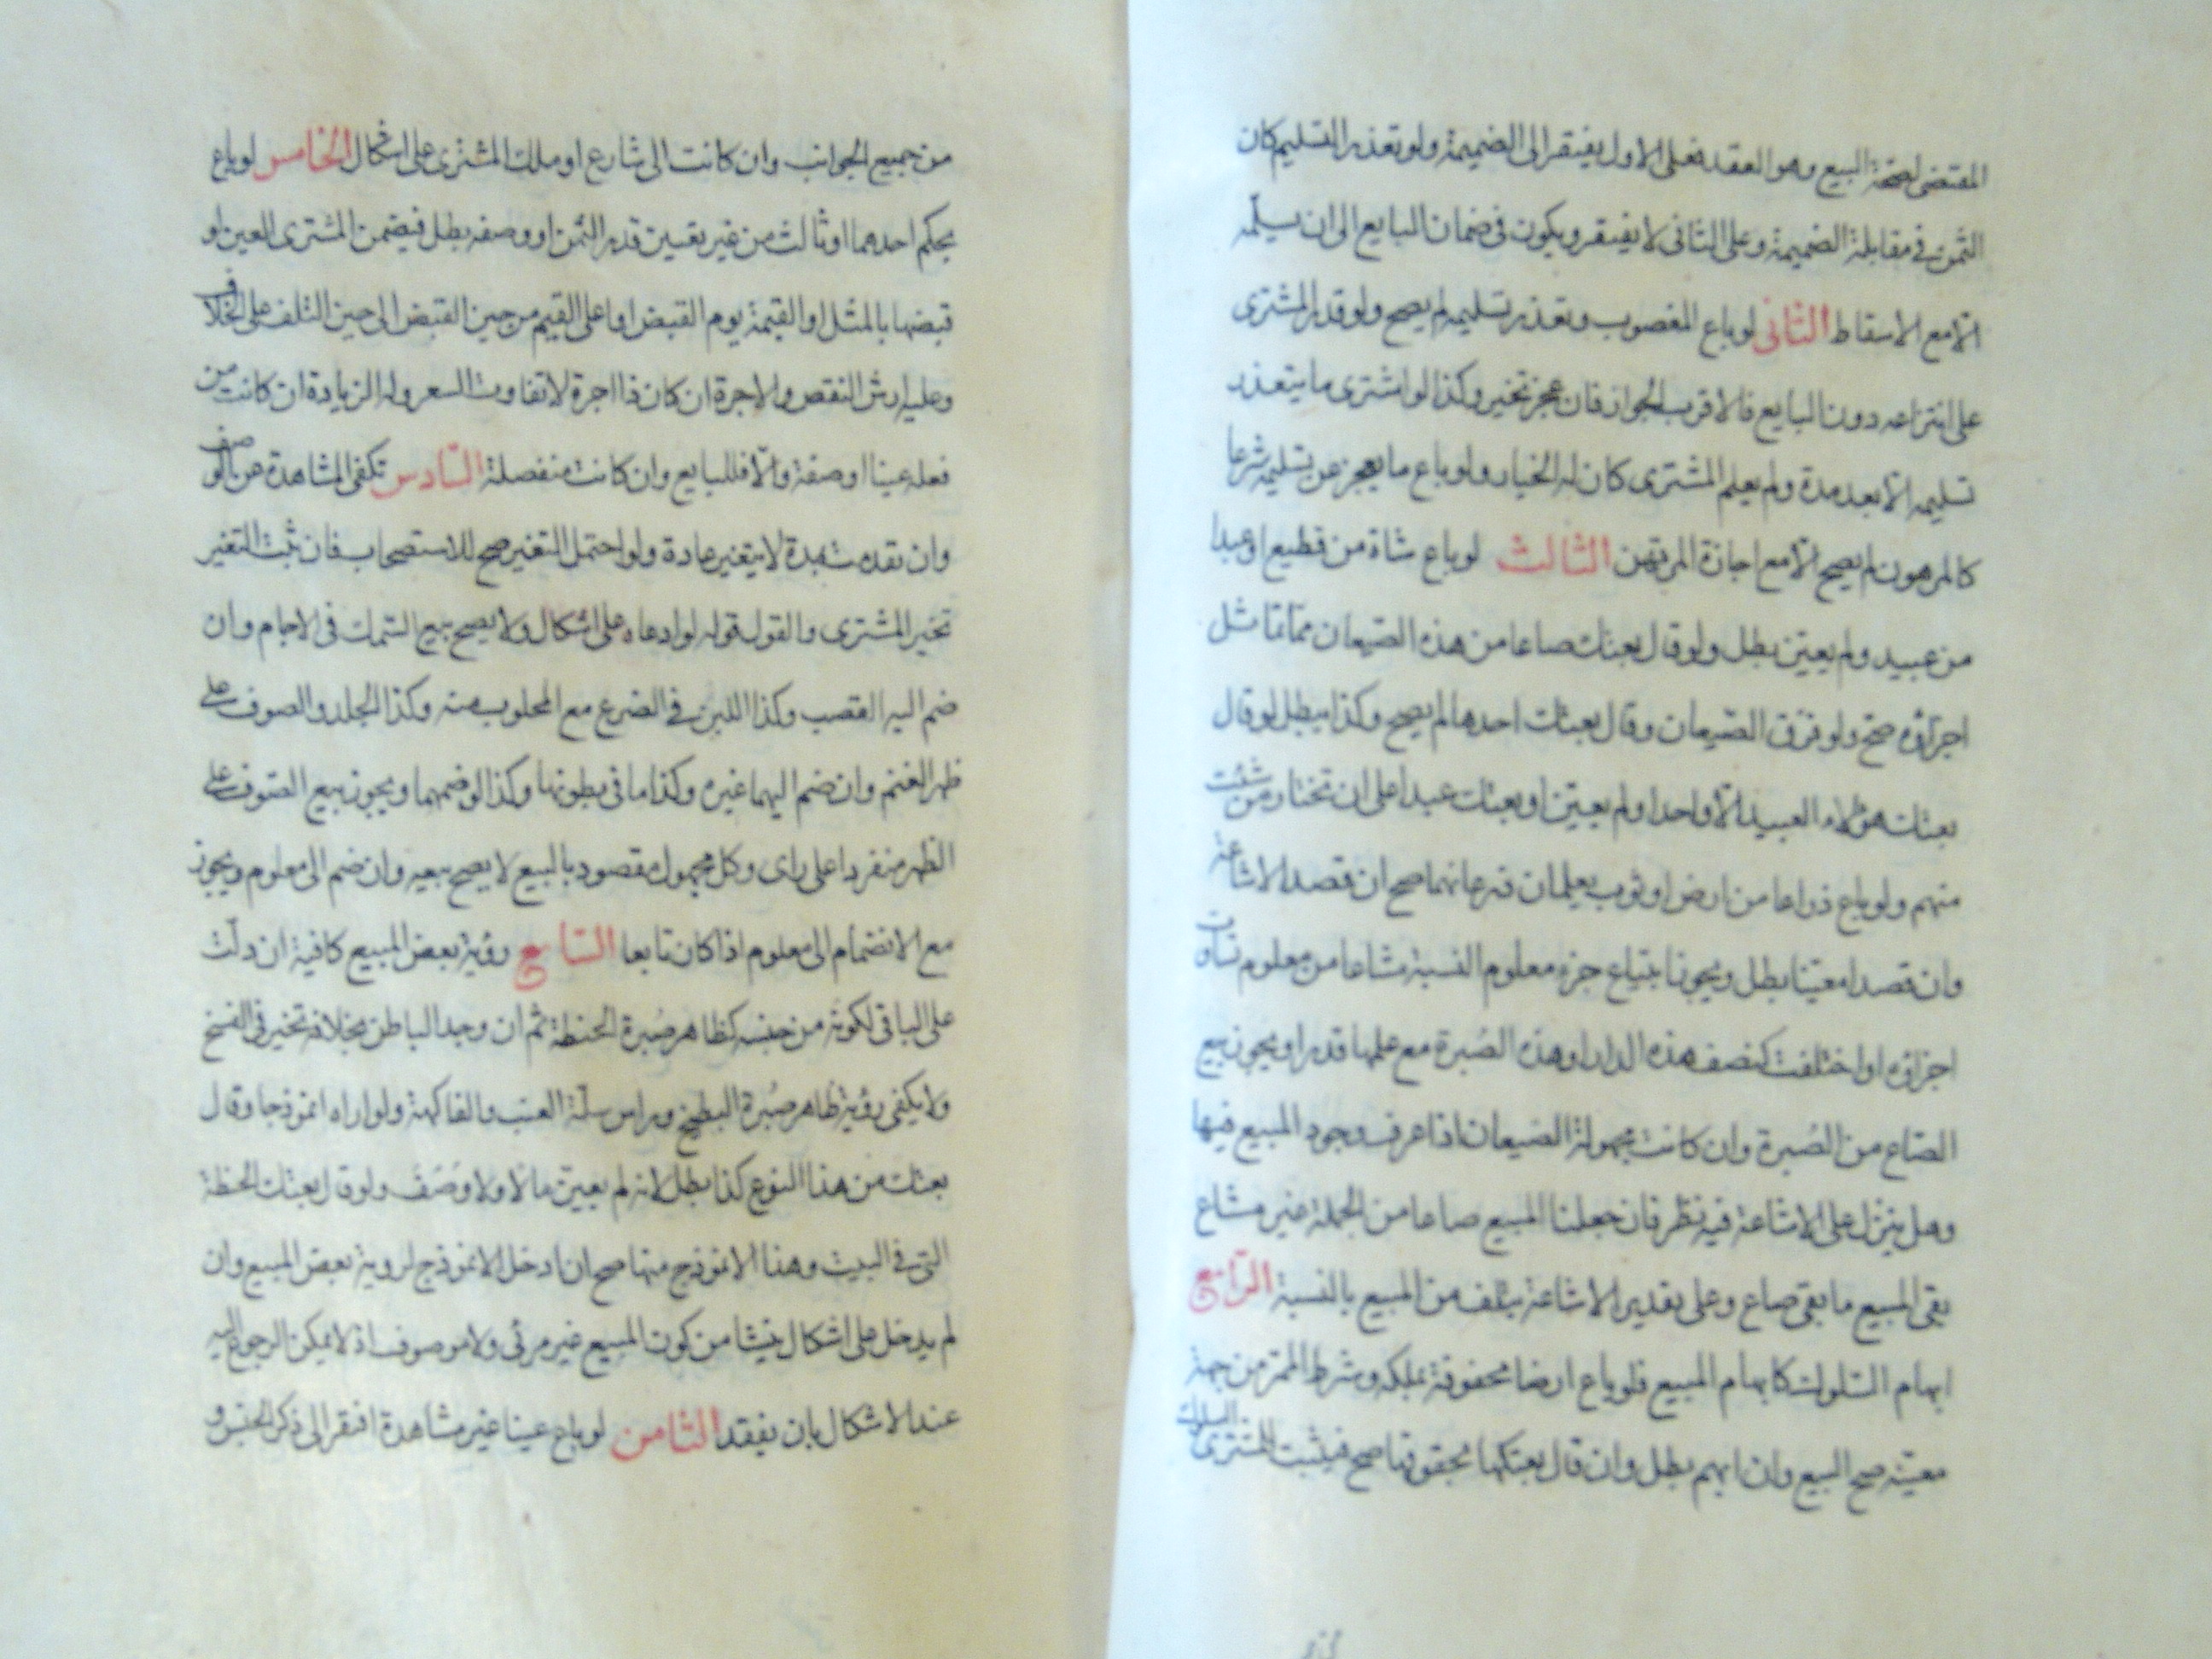 المقتضى لصحة البيع وهو العقد فعلى الاول يفتقر الى الضميمة ولو تعذر التسليم كان
الثمن في مقابلة الضميمة وعلى الثانى لا يفتقر ويكون فى ضمان البايع الى ان يسلّمه
الّا مع الاسقاط الثانى لو باع المغصوب وتعذر تسليمه لم يصح ولو قدر المشترى
على انتزاعه دون البايع فالاقرب الجواز فان عجز تخير وكذا لو اشترى ما يتعذر
تسليمه الّا بعد مدة ولم يعلم المشترى كان له الخيار ولو باع ما يعجز عن تسليمه شرعا
كالمرهون لم يصح الّا مع اجازة المرتهن الثالث لو باع شاة من قطيع او عبدا
من عبيد ولم يعيّن بطل ولو قال بعتك صاعا من هذه الصّيعان ممّا تماثل
اجزاؤه صحّ ولو فرّق الصّيعان وقال بعتك احدها لم يصح وكذا يبطل لو قال
بعتك هؤلاء العبيد الّا واحدا ولم يعيّن او بعتك عبدا على ان تختار من شئت
منهم ولو باع ذراعا من ارض او ثوب يعلمان ذرعانهما صح ان قصد الاشاعة
وان قصدا معيّنا بطل ويجوز ابتياع جزء معلوم النسبة مشاعا من معلوم تساوت
اجزاؤه او اختلفت كنصف هذه الدار او هذه الصُبرة مع علمها قدرا ويجوز بيع
الصّاع من الصُبرة وان كانت مجهولة الصّيعان اذا عرف وجود المبيع فيها
وهل ينزل على الاشاعة فيه نظر فان جعلنا المبيع صاعا من الجملة غير مشاع
بقى المبيع ما بقى صاع وعلى تقدير الاشاعة يتلف من المبيع بالنسبة الرّابع
ابهام السّلوك كابهام المبيع فلو باع ارضا محفوفة بملكه وشرط الممرّ من جهة
معيّنة صح البيع وان ابهم بطل وان قال بعتكها بحقوقها صح فيثبت للمشترى السلوك
من جميع الجوانب وان كانت الى شارع او ملك المشترى على اشكال الخامس لو باع
بحكم احدهما او ثالث من غير تعيين قدر الثمن او وصفه بطل فيضمن المشترى العين لو
قبضها بالمثل او القيمة يوم القبض او اعلى القيم من حين القبض الى حين التلف على الخلاف
وعليه ارش النقص والاجرة ان كان ذا اجرة لا تفاوت السعر وله الزيادة ان كانت من
فعله عينا او صفة والّا فللبايع وان كانت منفصلة السّادس تكفى المشاهدة عن الوصف
وان تقدمت بمدة لا يتغير عادة ولو احتمل التغير صح للاستصحاب فان ثبت التغير
تخير المشترى والقول قوله لو ادعاه على اشكال ولا يصح بيع السّمك فى الاجام وان
ضم اليه القصب وكذا اللبن في الضرع مع المحلوب منه وكذا الجلد والصوف على
ظهر الغنم وان ضم اليهما غيره وكذا ما فى بطونها وكذا لو ضمهما ويجوز بيع الصّوف على
الظهر منفردا على راى وكل مجهول مقصود بالبيع لا يصح بيعه وان ضم الى معلوم ويجوز
مع الانضمام الى معلوم اذا كان تابعا السّابع رؤية بعض المبيع كافية ان دلّت
على الباقى لكونه من جنسه كظاهر صُبرة الحنطة ثم ان وجد الباطن بخلافه تخير فى الفسخ
ولا يكفى رؤية ظاهر صُبرة البطيخ وراس سلّة العنب والفاكهة ولو اراه انموذجا وقال
بعتك من هذا النوع كذا بطل لانه لم يعيّن مالا ولا وَصَفَ ولو قال بعتك الحنطة
التى في البيت وهذا الانموذج منها صح ان ادخل الانموذج لروية بعض المبيع وان
لم يدخل على اشكال ينشا من كون المبيع غير مرئى ولا موصوف اذ لا يمكن الرجوع اليه
عند الاشكال بان يفقد الثامن لو باع عينا غير مشاهدة افتقر الى ذكر الجنس و